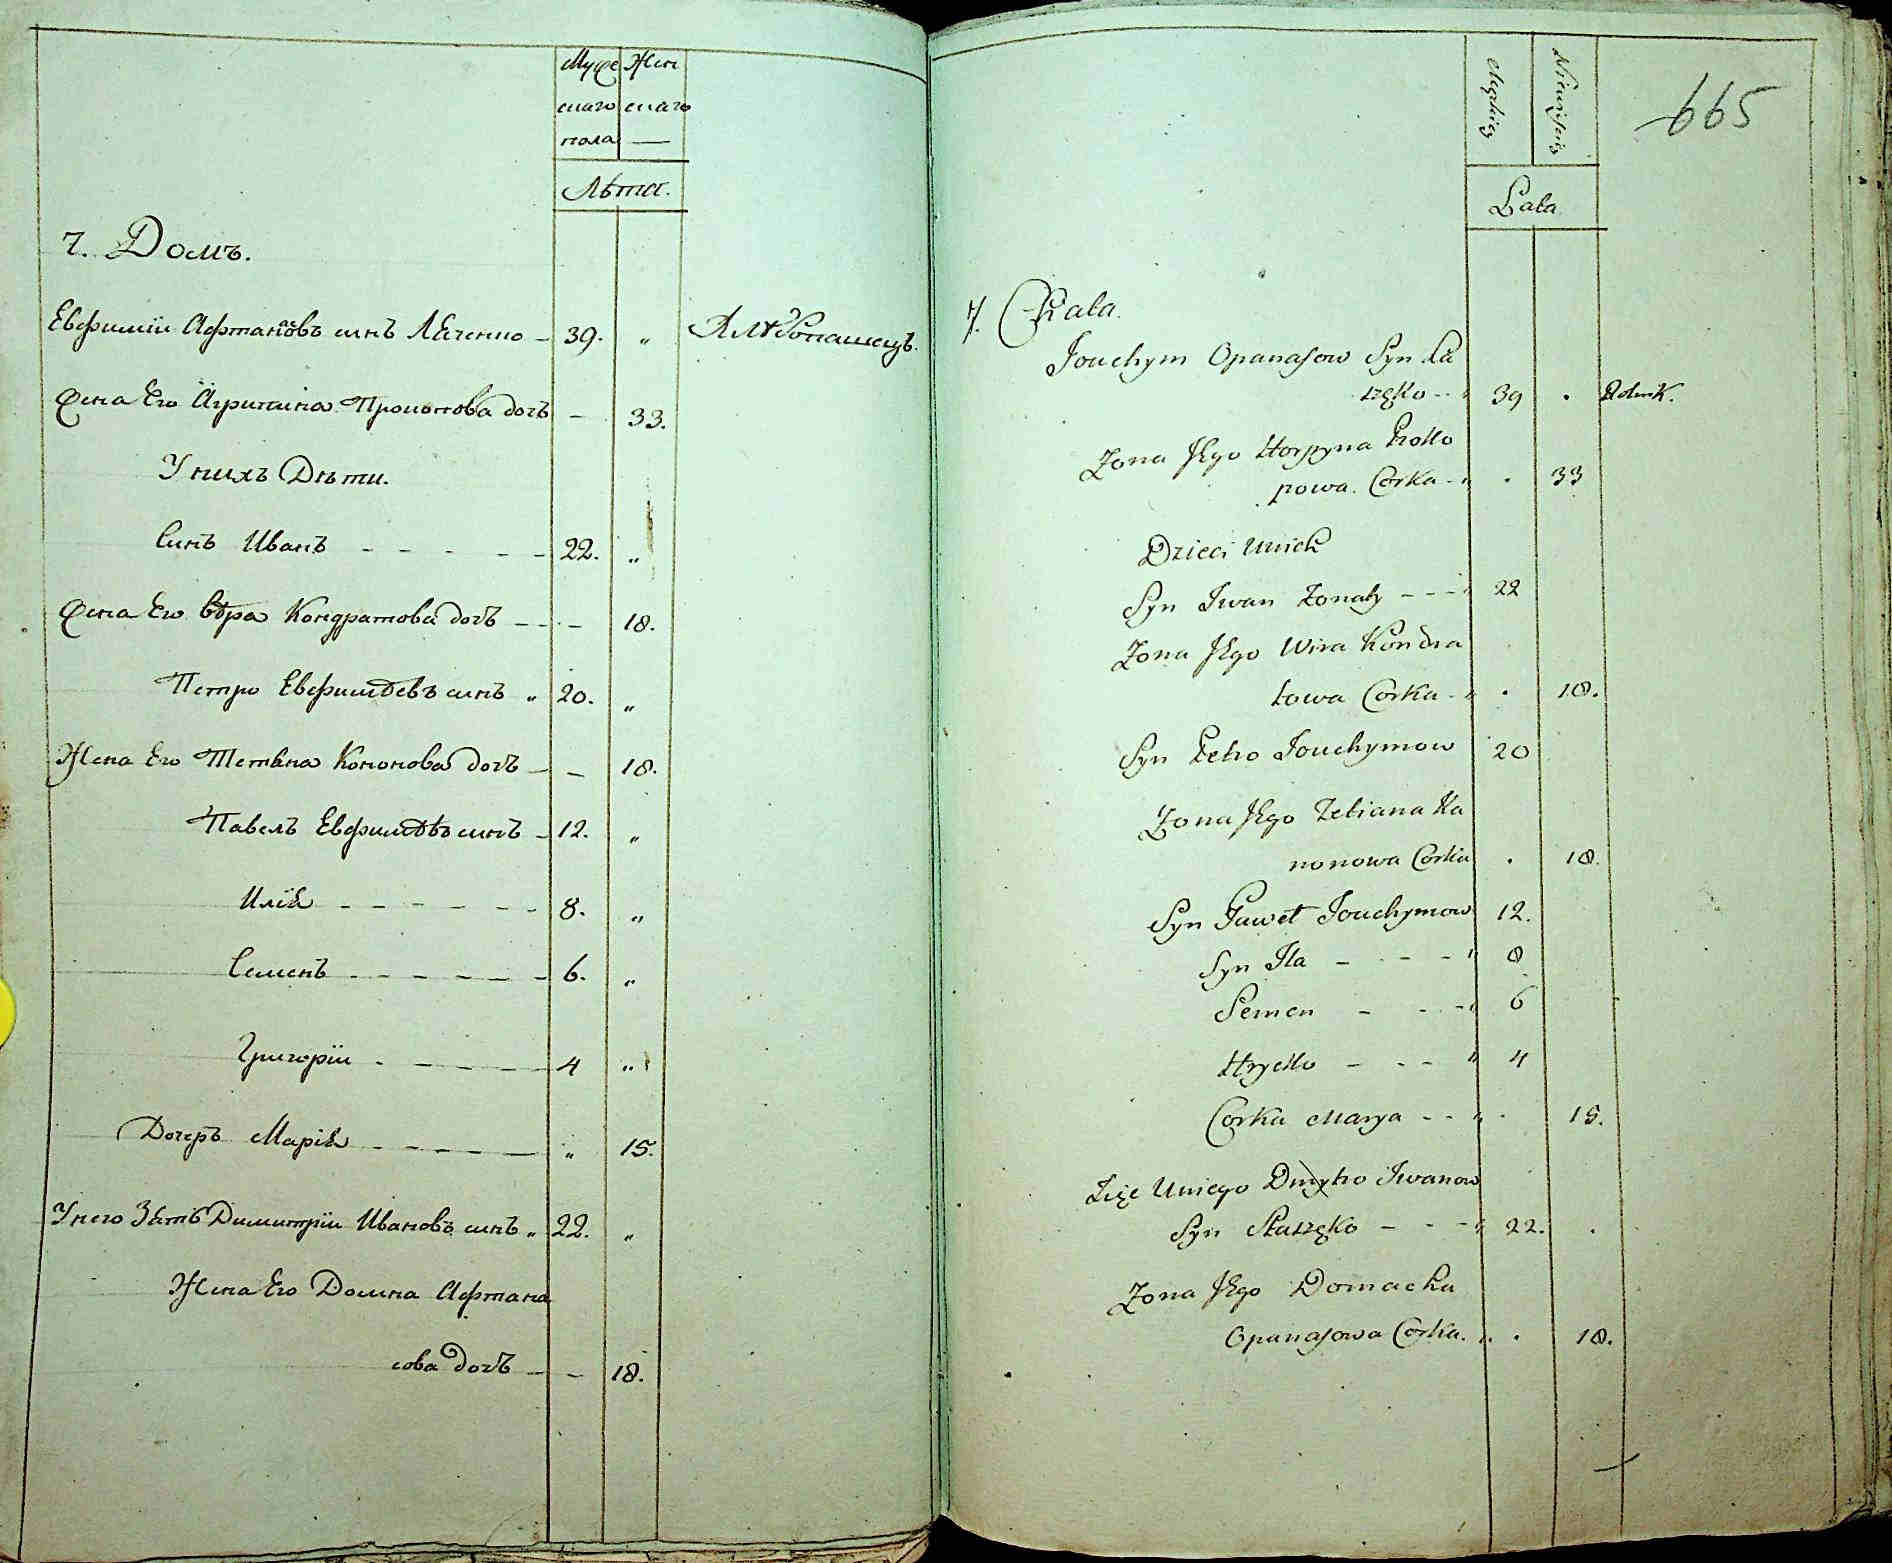 Муже Жен
скаго скаго
пола —
Лѣта.
7. Домъ.
Евфимїи Афтанасовъ синъ Лаченко – 39. „
жена Его Агрипина Прокопова дочъ – 33.
У нихъ Дѣти.
Синъ Иванъ – – – – – 22. „
жена Его Вѣра Кондратова дочъ – – – 18.
Петро Евфимѣевъ синъ „ 20. „
Жена Его Тетяна Кононова дочъ – – 18.
Павелъ Евфимѣвъ синъ – 12. „
Илїя – – – – – – 8. „
Семенъ – – – – – – 6. „
Григорїи – – – – – 4 „
Дочеръ Марїя – – – – – „ 15.
У него Зять Димитрїи Ивановъ синъ „ 22. „
Жена Его Домна Афтана
сова дочъ – – 18.
665
Męskiey
Lata
7. Chata.
Jouchym Opanasow Syn La
szęko – – 39 . Rolnik.
Zona Jego Horpyna Proko
powa Corka – . 33
Dzieci Unich
Syn Iwan Zonaty – – – 22
Zona Jego Wira Kondra
towa Corka – . 18.
Syn Petro Jouchymow 20
Zona Jego Tetiana Ka
nonowa Corka . 18.
Syn Paweł Jouchymow 12.
Syn Ila – – – „ 8
Semen – – – „ 6
Hrycko – – – „ 4
Corka Marya – – „ . 15.
Zięc Uniego Dmytro Iwanow
Syn Staszęko – – – „ 22. .
Zona Jego Domacha
Opanasowa Corka. „ . 18.